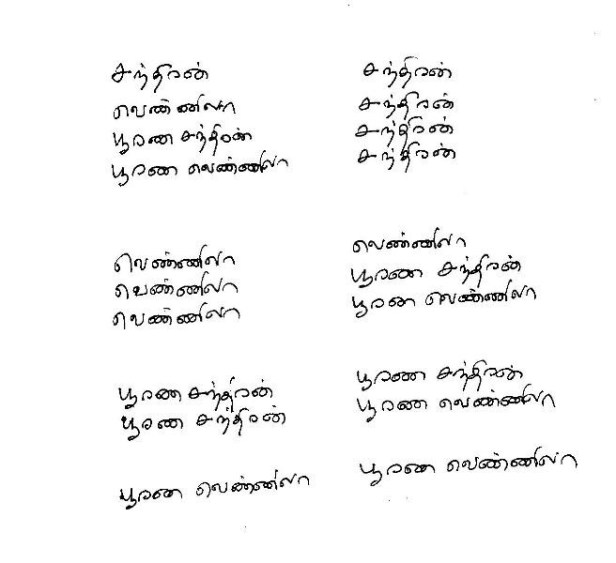 சந்திரன்
வெண்ணிலா
பூரண சந்திரன்
பூரண வெண்ணிலா
வெண்ணிலா
வெண்ணிலா
வெண்ணிலா
பூரண சந்திரன்
பூரண சந்திரன்
பூரண வெண்ணிலா
சந்திரன்
சந்திரன்
சந்திரன்
சந்திரன்
வெண்ணிலா
பூரண சந்திரன்
பூரண வெண்ணிலா
பூரண சந்திரன்
பூரண வெண்ணிலா
பூரண வெண்ணிலா